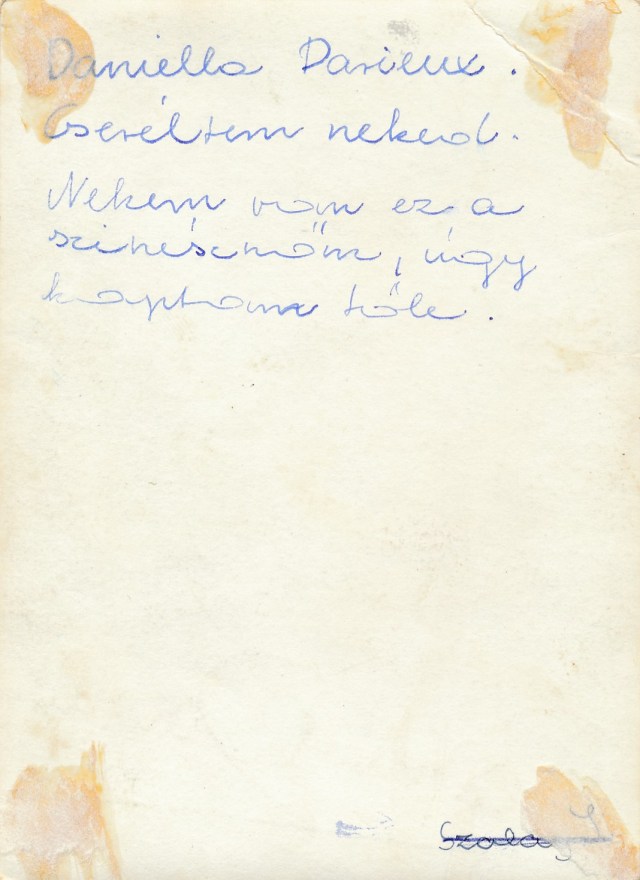 Daniella Darieux.
Cseréltem neked.
Nekem van ez a
szinésznőm, úgy
kaptam tőle.